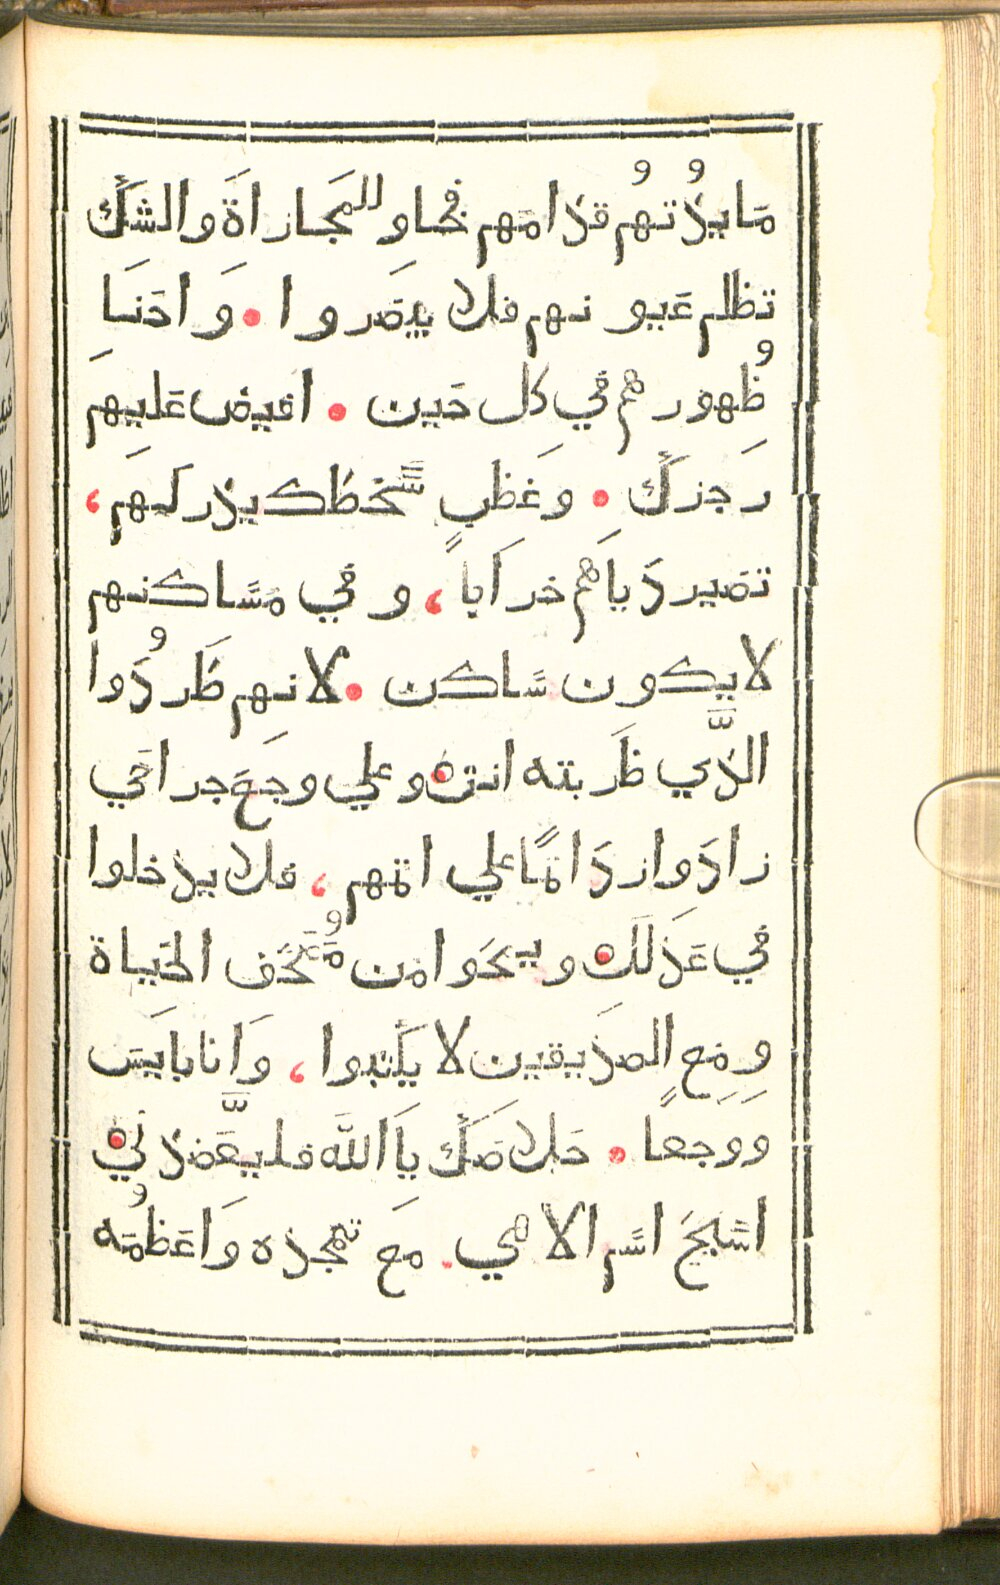 مَايدُتهُم قدامَهم فخا وللمَجازاةَ والشكَّ
تظلم عَيو نهم فلا يبصَروا • وَاحَنيَا
ظُهورهم في كل حَين • افيض عَليهم
رجزكَ • وغَظبِ سَّخطك يدركهَم ،
تصَير دَياَهم خراَباً ، و في مَسَاكنهم
لا يكون سَاكن • لانهم طَردُوا
الذَّي ظَربته انت • وعلي وجَعَ جراحَي
زادَوا زدَ اثمًا علي اثمهم ، فلا يدخلوا
في عَدَلَك • ويمحَوا من مُصَّحَف الحَياة
ومَع الصدَيقين لا يكَتبوا ، وَانا بايَسَ
وَوَجعًا • خَلاصَكَ ياَ الله فليَّعَضدني •
اسَبحَ اسَم الاهي . معَ تمجده وَاعَظمُه